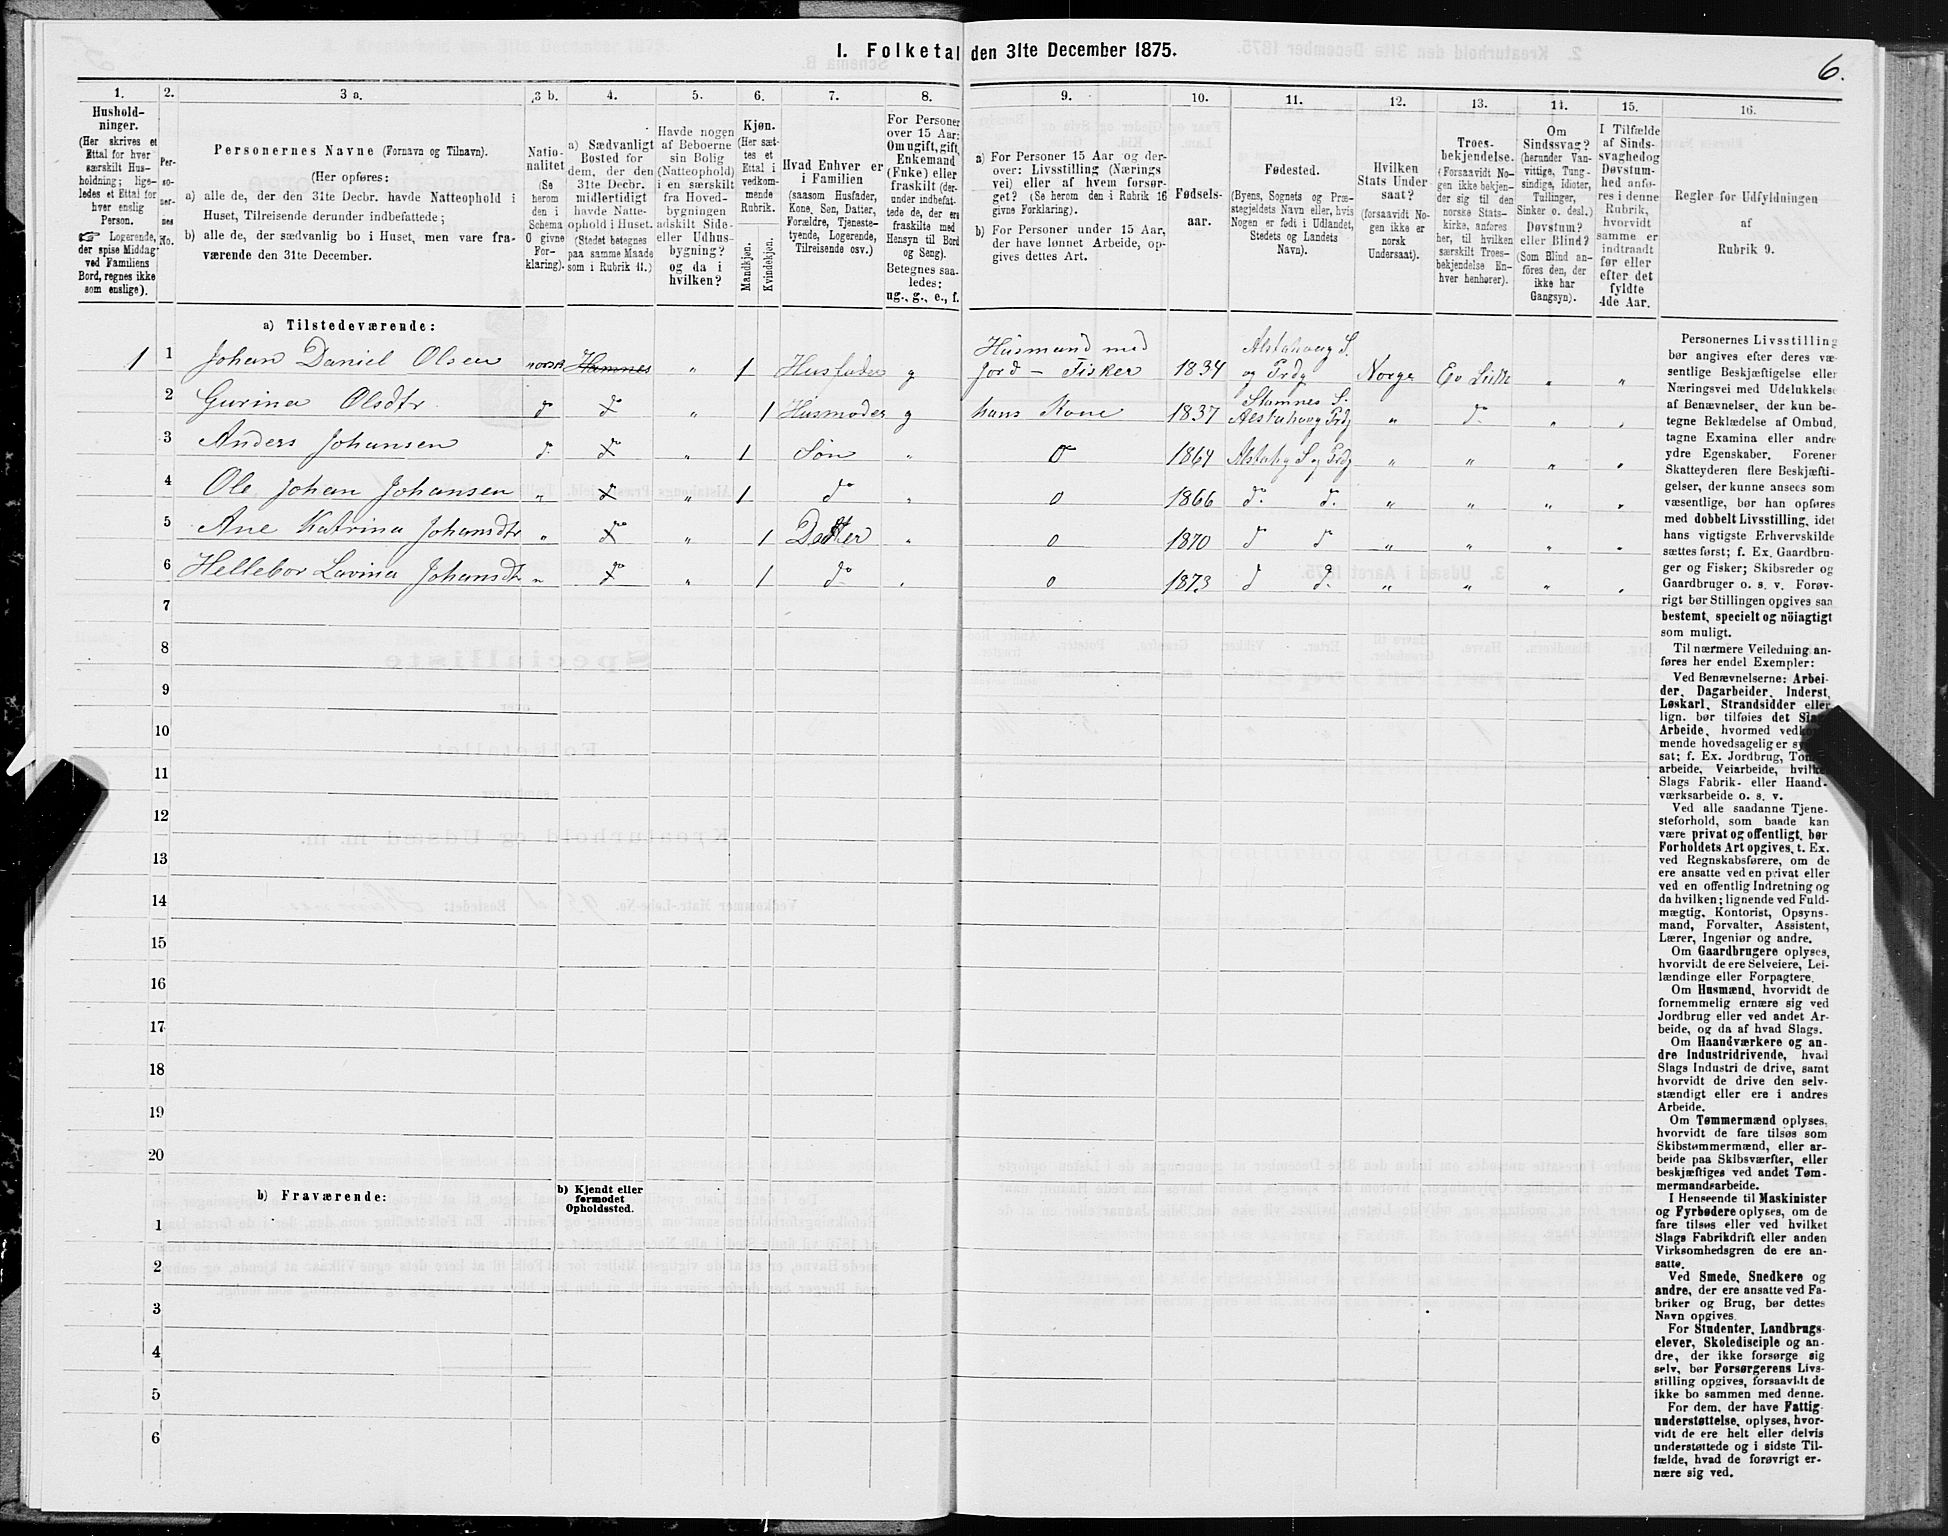 1. Folketal den 31te December 1875.
6.
1.
2.
3 a.
3 b.
4.
5.
6.
7.
8.
9.
10.
11.
12.
13.
14.
15.
16.
Hushold-
ninger.
(Her skrives et
Ettal for hver
særskilt Hus-
holdning; lige-
ledes et Ettal for
hver enslig
Person.
Logerende,
der spise Middag
ved Familiens
Bord, regnes ikke
som enslige).
Per-
so-
ner-
nes
No.
Personernes Navne (Fornavn og Tilnavn).
(Her opføres:
a) alle de, der den 31te Decbr. havde Natteophold i
Huset, Tilreisende derunder indbefattede;
b) alle de, der sædvanlig bo i Huset, men vare fra-
værende den 31te December.
Natio-
nalitet
(Se
herom
den i
Schema
O givne
For-
klaring).
a) Sædvanligt
Bosted for
dem, der den
31te Decbr.
midlertidigt
havde Natte-
ophold i Huset.
(Stedet betegnes
paa samme Maade
som i Rubrik 11.)
Havde nogen
af Beboerne
sin Bolig
(Natteophold)
i en særskilt
fra Hoved-
bygningen
adskilt Side-
eller Udhus-
bygning?
og da i
hvilken?
Kjøn.
(Her sæt-
tes et
Ettal i
vedkom-
mende
Rubrik.
Mandkjøn.
Kvindekjøn.
Hvad Enhver er
i Familien
(saasom Husfader,
Kone, Søn, Datter,
Forældre, Tjeneste-
tyende, Logerende,
Tilreisende osv.)
For Personer
over 15 Aar:
Om ugift, gift,
Enkemand
(Enke) eller
fraskilt (der-
under indbefat-
tede de, der ere
fraskilte med
Hensyn til Bord
og Seng).
Betegnes saa-
ledes:
ug., g., e., f.
a) For Personer 15 Aar og der-
over: Livsstilling (Nærings
vei) eller af hvem forsør-
get? (Se herom den i Rubrik 16
givne Forklaring).
b) For Personer under 15 Aar,
der have lønnet Arbeide, op-
gives dettes Art.
Fødsels-
aar.
Fødested.
(Byens, Sognets og Præ-
stegjeldets Navn eller, hvis
Nogen er født i Udlandet,
Stedets og Landets
Navn).
Hvilken
Stats Under
saat?
(forsaavidt No-
gen ikke er
norsk
Undersaat).
Troes-
bekjendelse.
(Forsaavidt No-
gen ikke bekjen-
der sig til den
norske Stats-
kirke, anføres
her, til hvilken
særskilt Troes-
bekjendelse En-
hver henhører).
Om
Sindssvag?
(herunder Van-
vittige, Tung-
sindige, Idioter,
Tullinger,
Sinker o. desl.)
Døvstum?
eller Blind?
(Som Blind an-
føres den, der
ikke har
Gangsyn).
I Tilfælde
af Sinds-
svaghed og
Døvstum-
hed anfø-
res i denne
Rubrik,
hvorvidt
samme er
indtraadt
før eller
efter det
fyldte
4de Aar.
Regler for Udfyldningen
af
Rubrik 9.
a) Tilstedeværende:
1 1 Johan Daniel Olsen norsk Hamnes " 1 Husfader g Husmand med Jord - Fisker 1834 Alstahaug S. og Prdg Norge Ev Luth " "
2 Gurina Olsdtr do do " 1 Husmoder g hans Kone 1837 Stamnes S. Alstahaug Prdg " do " "
3 Anders Johansen do do " 1 Søn " 0 1864 Alstahg S og Prdg " " " "
4 Ole Johan Johansen " do " 1 do " 0 1866 do do " " " "
5 Ane Katrina Johansdtr " do " 1 Datter " 0 1870 do do " " " "
6 Hellebor Lavina Johansdtr " do " 1 do " 0 1873 do do " " " "
7
8
9
10
11
12
13
14
15
16
17
18
19
20
b) Fraværende:
b) Kjendt eller
formodet
Opholdssted.
1
2
3
4
5
6
Personernes Livsstilling
bør angives efter deres væ-
sentlige Beskjæftigelse eller
Næringsvei med Udelukkelse
af Benævnelser, der kun be-
tegne Beklædelse af Ombud,
tagne Examina eller andre
ydre Egenskaber. Forener
Skatteyderen flere Beskjæfti-
gelser, der kunne ansees som
væsentlige, bør han opføres
med dobbelt Livsstilling, idet
hans vigtigste Erhvervskilde
sættes først; f. Ex. Gaardbru-
ger og Fisker; Skibsreder og
Gaardbruger o. s. v. Forøv-
rigt bør Stillingen opgives saa
bestemt, specielt og nöiagtigt
som muligt.
Til nærmere Veiledning an-
føres her endel Exempler:
Ved Benævnelserne: Arbei-
der, Dagarbeider, Inderst,
Løskarl, Strandsidder eller
lign. bør tilføies det Slags
Arbeide, hvormed vedkom-
mende hovedsagelig er syssel-
sat; f. Ex. Jordbrug, Tomte-
arbeide, Veiarbeide, hvilket
Slags Fabrik- eller Haand-
værksarbeide o. s. v.
Ved alle saadanne Tjene-
steforhold, som baade kan
være privat og offentligt, bør
Forholdets Art opgives, t. Ex.
ved Regnskabsførere, om de
ere ansatte ved en privat eller
ved en offentlig Indretning og
da hvilken; lignende ved Fuld-
mægtig, Kontorist, Opsyns-
mand, Forvalter, Assistent,
Lærer, Ingeniør og andre.
Om Gaardbrugere oplyses,
hvorvidt de ere Selveiere, Lei-
lændinge eller Forpagtere.
Om Husmænd, hvorvidt de
fornemmelig ernære sig ved
Jordbrug eller ved andet Ar-
beide, og da af hvad Slags.
Om Haandværkere og an-
dre Industridrivende, hvad
Slags Industri de drive, samt
hvorvidt de drive den selv-
stændigt eller ere i andres
Arbeide.
Om Tømmermænd oplyses,
hvorvidt de fare tilsøs som
Skibstømmermænd, eller ar-
beide paa Skibsværfter, eller
beskjæftiges ved andet Tøm-
mermandsarbeide.
I Henseende til Maskinister
og Fyrbødere oplyses, om de
fare tilsøs eller ved hvilket
Slags Fabrikdrift eller anden
Virksomhedsgren de ere an-
satte.
Ved Smede, Snedkere og
andre, der ere ansatte ved Fa-
briker og Brug, bør dettes
Navn opgives.
For Studenter, Landbrugs-
elever, Skoledisciple og an-
dre, der ikke forsørge sig
selv, bør Forsørgerens Livs-
stilling opgives, forsaavidt de
ikke bo sammen med denne.
For dem, der have Fattig-
understøttelse, oplyses, hvor-
vidt de ere helt eller delvis
understøttede og i sidste Til-
fælde, hvad de forøvrigt er-
nære sig ved.